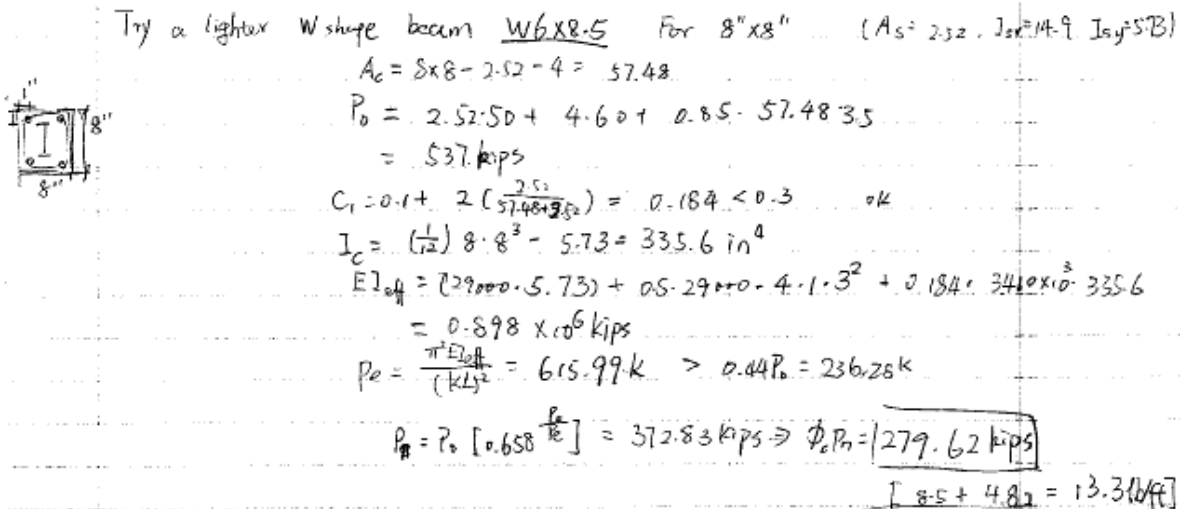 Try a lighter W shape beam W6x8.5 For 8"x8" (As= 2.52, Isx=14.9 Isy=5.73)
Ac = 8x8 - 2.52 - 4 = 57.48
1"
8"
8"
P₀ = 2.52·50 + 4·60 + 0.85· 57.48 3.5
= 537 kips
C₁ = 0.1 + 2 (2.52/(57.48+2.52)) = 0.184 < 0.3 ok
Ic = (1/12) 8·8³ - 5.73 = 335.6 in⁴
EIeff = (29000·5.73) + 0.5·29000·4·1·3² + 0.184· 3410x10³· 335.6
= 0.898 x10⁶ kips
Pe = π²EIeff/(KL)² = 615.99 k > 0.44P₀ = 236.28k
Pn = P₀ [0.658^(P₀/Pe)] = 372.83 kips ⇒ ϕcPn = 279.62 kips
[ 8.5 + 4.82 = 13.3 lb/ft]